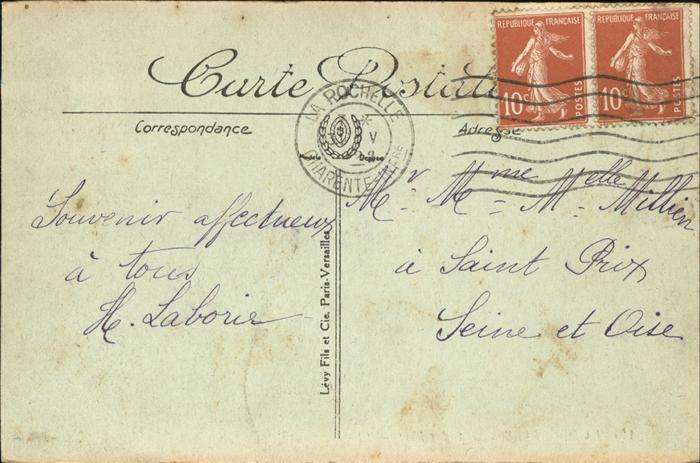 Carte Postale
RÉPUBLIQUE FRANÇAISE
10c POSTES
RÉPUBLIQUE FRANÇAISE
10c POSTES
LA ROCHELLE
CHARENTE-INFRE
Correspondance
Adresse
Souvenir affectueux
à tous
H. Laborie
Lévy Fils et Cie, Paris-Versailles
Mr Mme Melle Millien
à Saint Prix
Seine et Oise